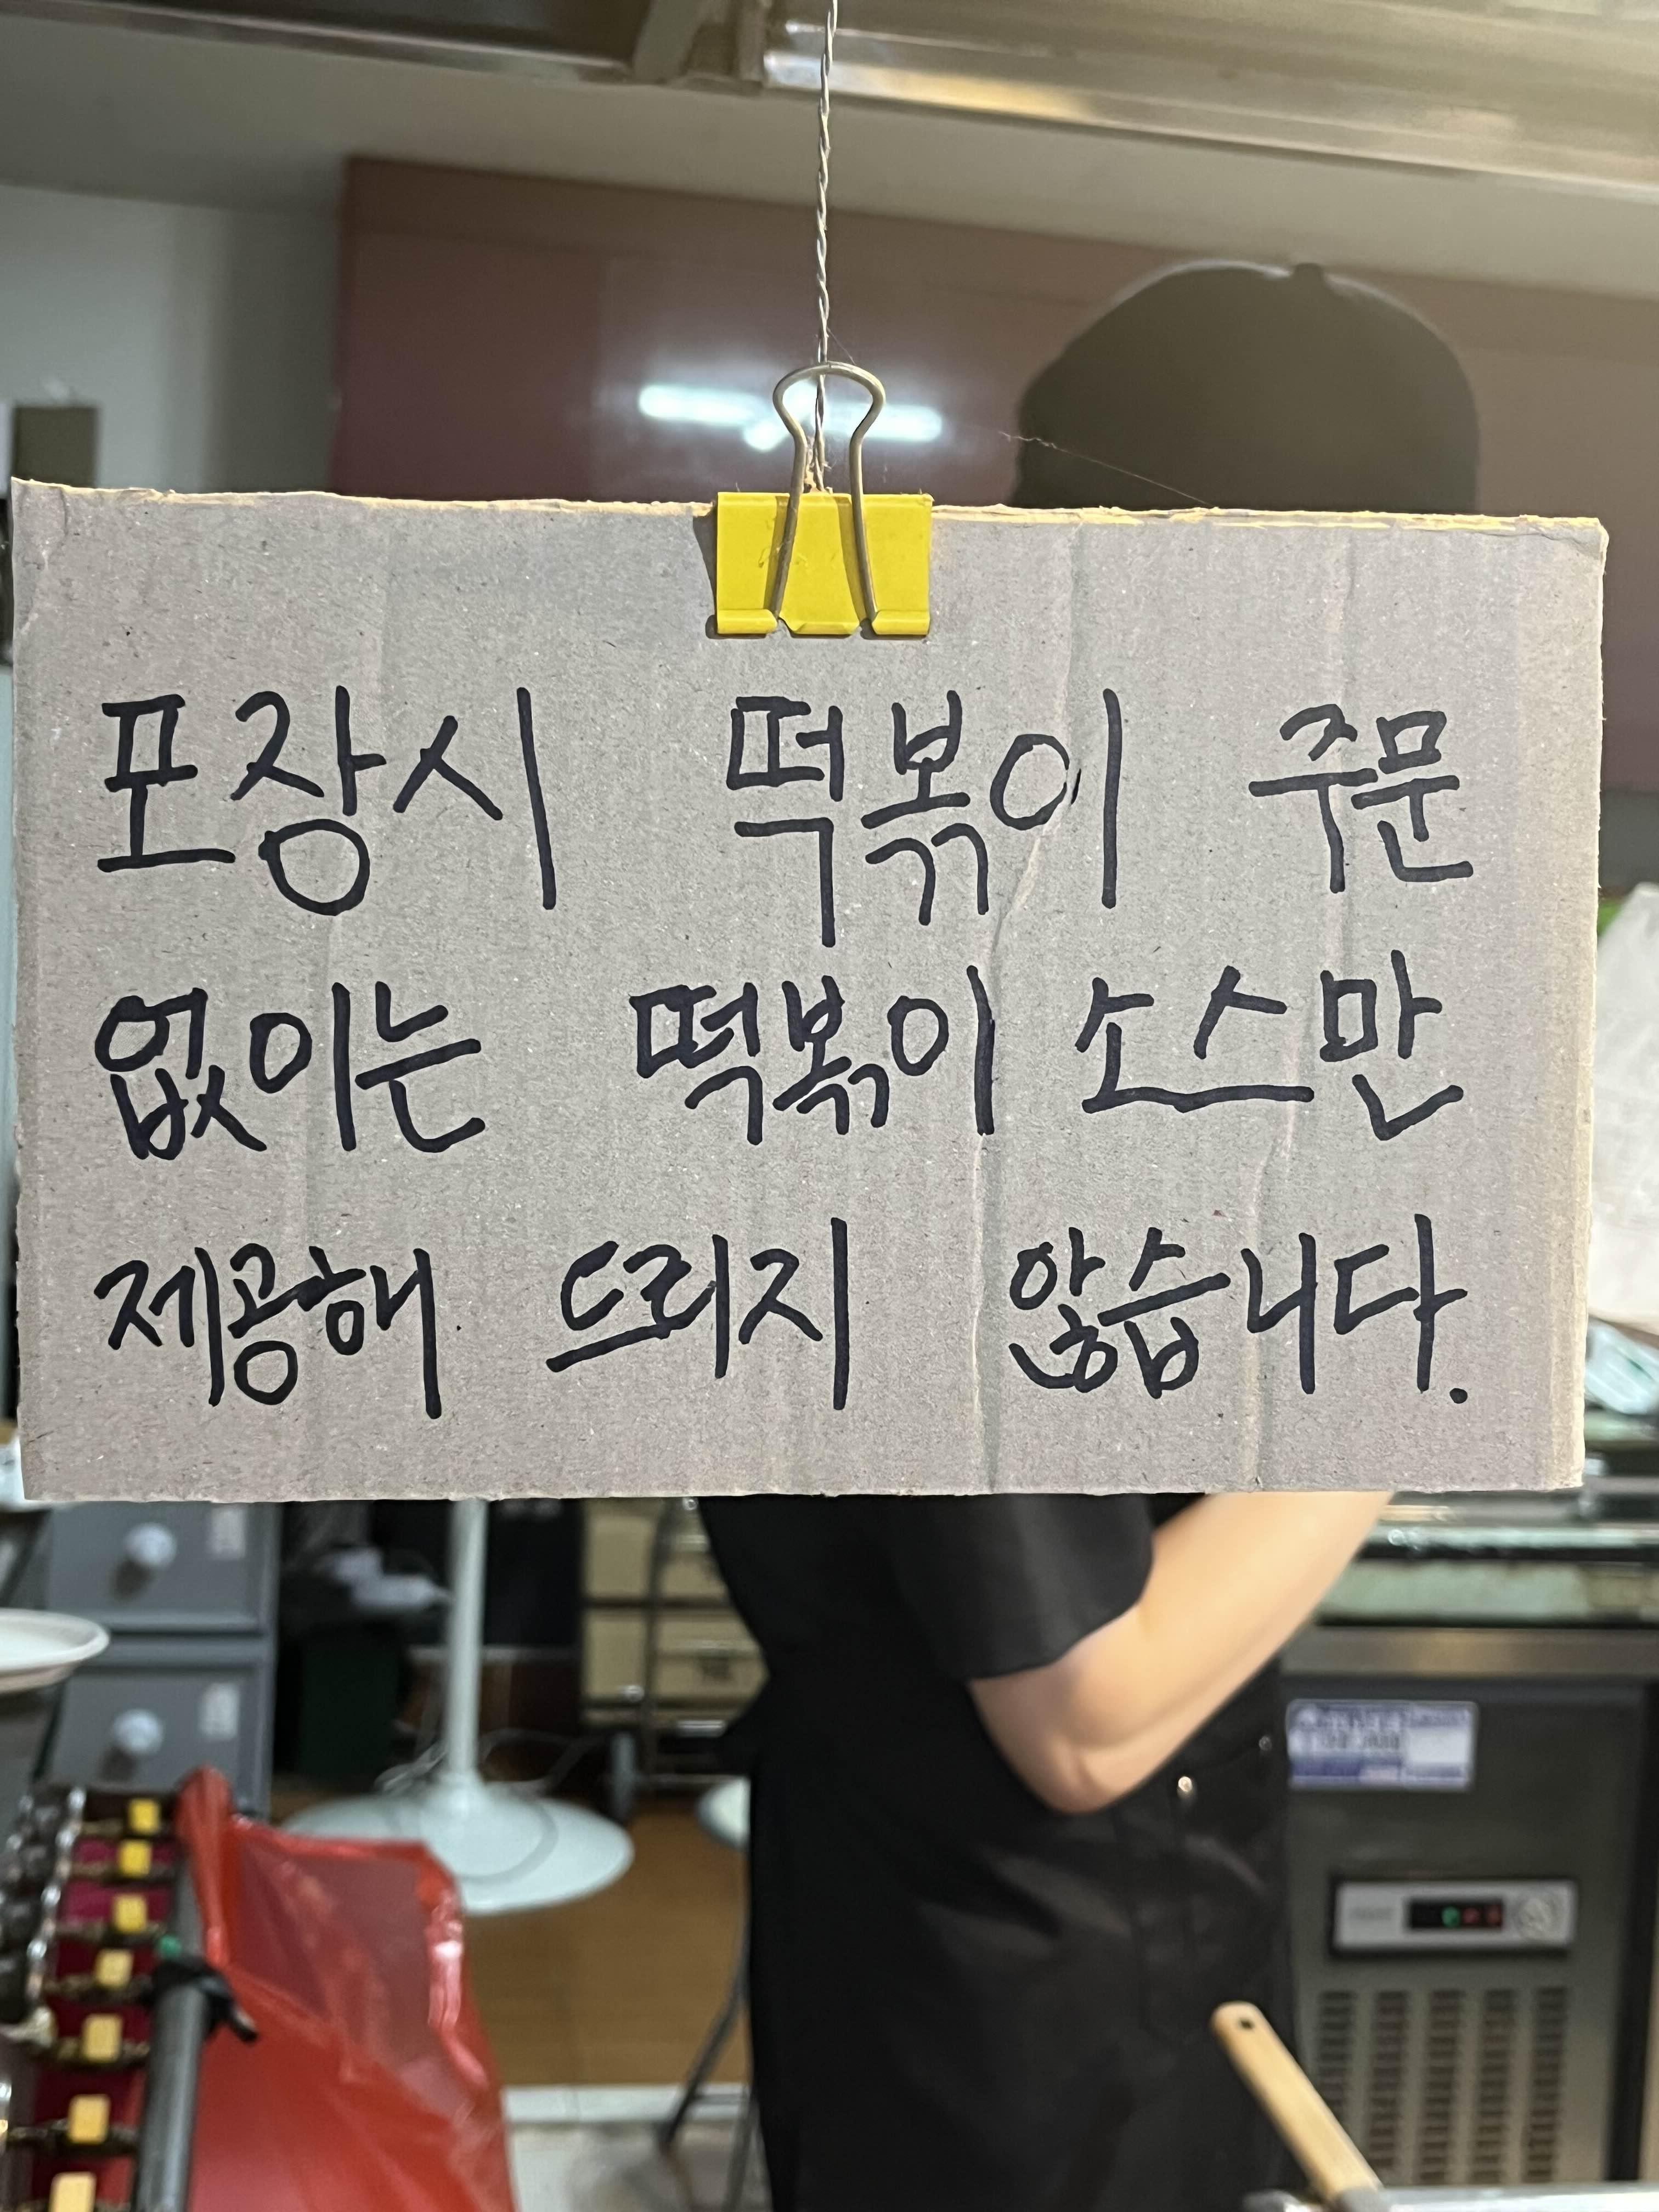 포장시 떡볶이 주문
없이는 떡볶이 소스만
제공해 드리지 않습니다.